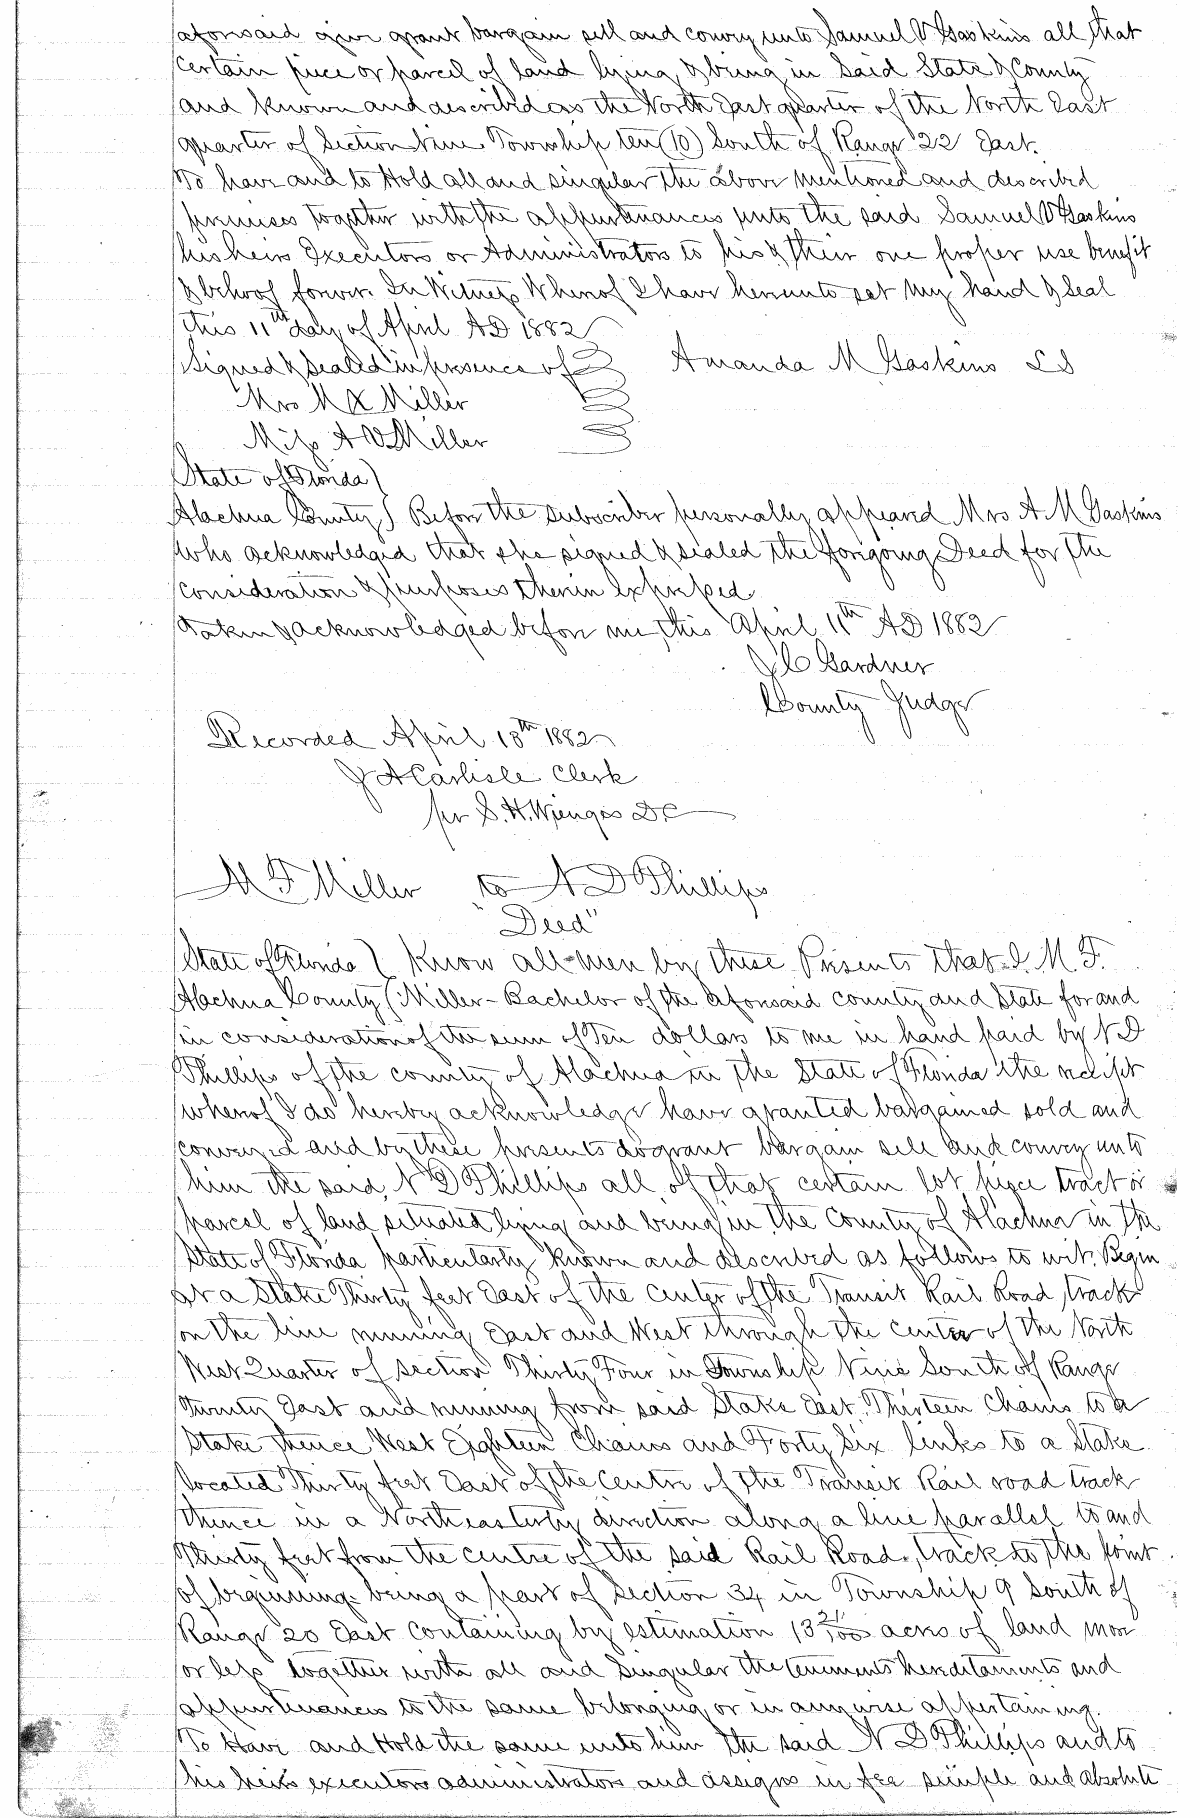 aforesaid give grant bargain sell and convey unto Samuel V Gaskins all that
certain piece or parcel of land lying & being in Said State & County
and known and described as the North East quarter of the North East
quarter of Section Nine Township ten (10) South of Range 22 East.
To have and to Hold all and singular the above mentioned and described
premises together with the appurtenances unto the said Samuel V Gaskins
his heirs Executors or Administrators to his & their one proper use benefit
& behoof forever. In Witness Whereof I have hereunto set my hand & Seal
this 11th day of April AD 1882
Signed & Sealed in presence of Amanda M Gaskins LS
Mrs M X Miller
Miss A V Miller
State of Florida
Alachua County Before the subscriber personally appeared Mrs A M Gaskins
who acknowledged that she signed & sealed the foregoing Deed for the
consideration & purposes therein expressed
Taken & acknowledged before me, this April 11th AD 1882
J C Gardner
County Judge
Recorded April 18th 1882
J A Carlisle Clerk
per S. H. Wienges D.C
M F Miller to N D Phillips
"Deed"
State of Florida Know all men by these Presents that I. M. F.
Alachua County (Miller - Bachelor of the aforesaid county and State for and
in consideration of the sum of Ten dollars to me in hand paid by N D
Phillips of the county of Alachua in the State of Florida the receipt
whereof I do hereby acknowledge have granted bargained sold and
conveyed and by these presents do grant bargain sell and convey unto
him the said N D Phillips all of that certain lot piece tract or
parcel of land situated lying and being in the County of Alachua in the
State of Florida particularly known and described as follows to wit. Begin
at a Stake Thirty feet East of the center of the Transit Rail Road track
on the line running East and West through the center of the North
West Quarter of section Thirty Four in Township Nine South of Range
Twenty East and running from said Stake East. Thirteen Chains to a
Stake thence West Eighteen Chains and Forty Six links to a Stake
located Thirty feet East of the Centre of the Transit Rail road track
thence in a Northeasterly direction along a line parallel to and
Thirty feet from the centre of the said Rail Road, track to the point
of beginning. being a part of Section 34 in Township 9 South of
Range 20 East containing by estimation 13 21/100 acres of land more
or less together with all and Singular the tenements hereditaments and
appurtenances to the same belonging or in anywise appertaining.
To Have and Hold the same unto him the said N D Phillips and to
his heirs executors administrators and assigns in fee simple and absolute